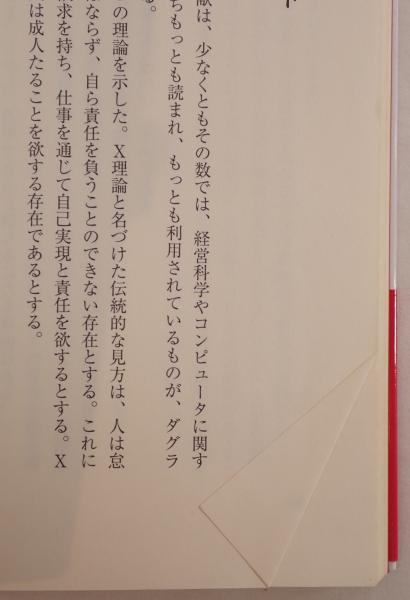 献は、少なくともその数では、経営科学やコンピュータに関す
ちもっとも読まれ、もっとも利用されているものが、ダグラ
る。
の理論を示した。X理論と名づけた伝統的な見方は、人は怠
ばならず、自ら責任を負うことのできない存在とする。これに
求を持ち、仕事を通じて自己実現と責任を欲するとする。X
は成人たることを欲する存在であるとする。